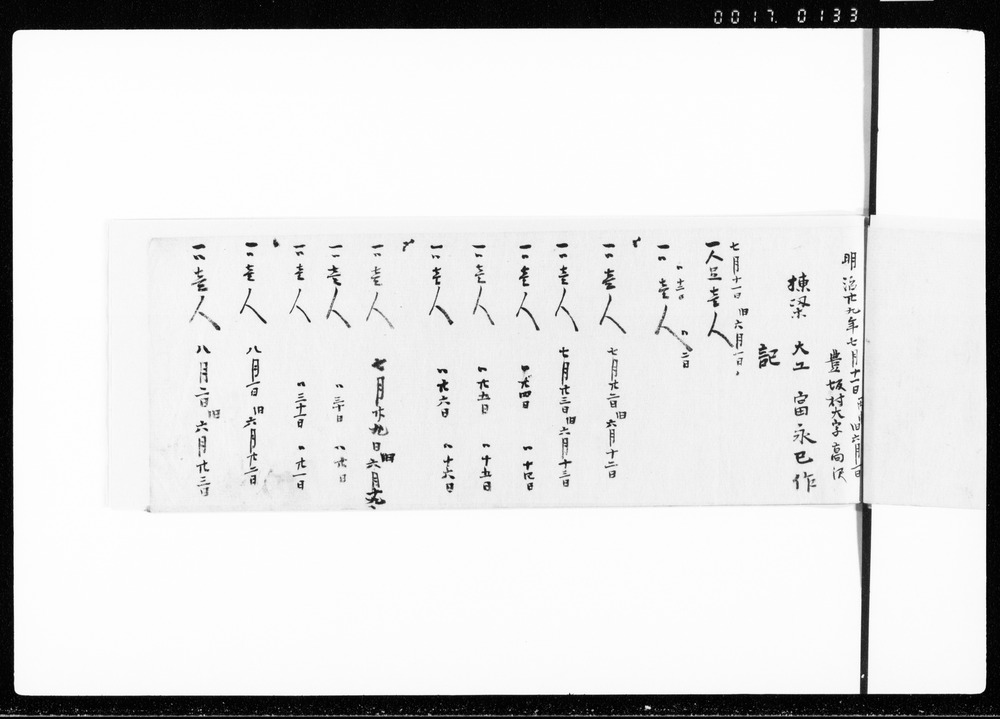 0017. 0133
明治廿九年七月十一日 旧六月一日
豊坂村大字高沢
棟梁 大工 富永已作
記
七月十一日 旧六月一日
一人足壱人
〃十二日 〃二日
一〃壱人
一〃壱人 七月廿二日旧六月十二日
一〃壱人 七月廿三日旧六月十三日
一〃壱人 〃廿四日 〃十四日
一〃壱人 〃廿五日 〃十五日
一〃壱人 〃廿六日 〃十六日
一〃壱人 七月廿九日旧六月十九日
一〃壱人 〃三十日 〃廿日
一〃壱人 〃三十一日 〃廿一日
一〃壱人 八月一日旧六月廿二日
一〃壱人 八月二日旧六月廿三日